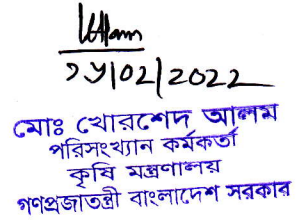 মোঃ খোরশেদ আলম
পরিসংখ্যান কর্মকর্তা
কৃষি মন্ত্রণালয়
গণপ্রজাতন্ত্রী বাংলাদেশ সরকার